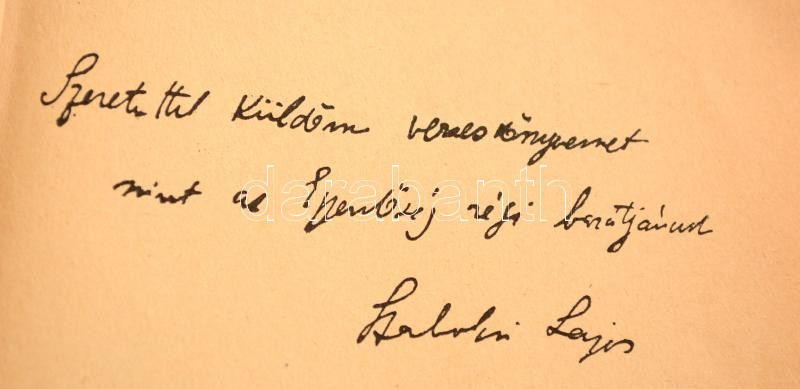 Szeretettel küldöm verseskönyvemet
mint az Egyenlőség régi barátjának
Szabolcsi Lajos
darabanth